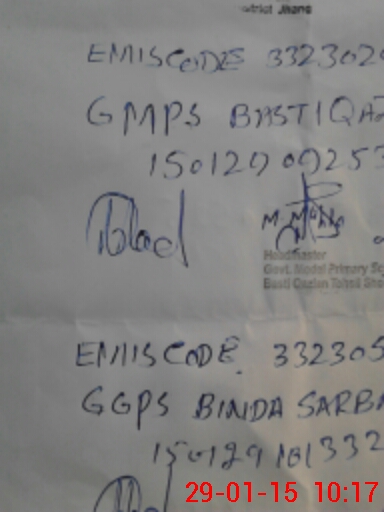 District Jhang
EMISCODES 3323020
GMPS BASTIQAZ
150129 09253
Headmaster
Govt. Model Primary Sc
Basti Qazian Tahsil Sho
EMIISCODE. 332305
GGPS BINDA SARBA
150129 101332
29-01-15 10:17